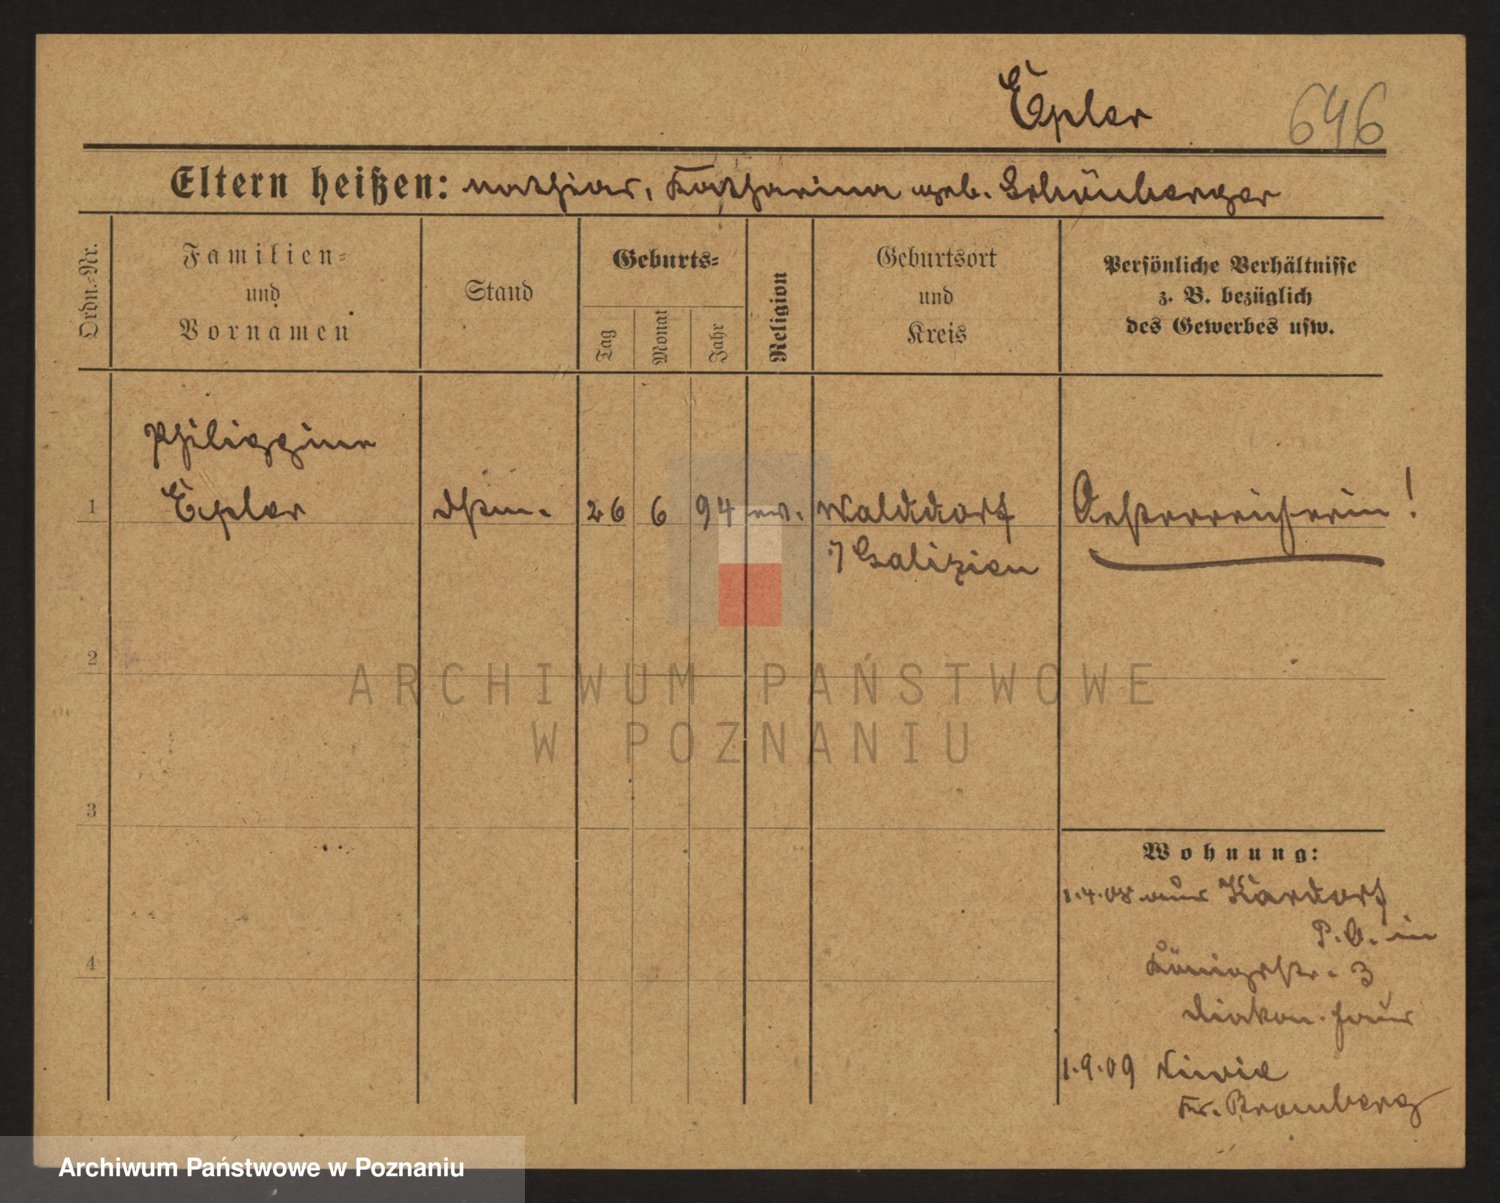 Epler 646
Eltern heißen: Mathias, Katharina geb. Schönberger
Ordn.-Nr.
Familien-
und
Vornamen
Stand
Geburts-
Tag
Monat
Jahr
Religion
Geburtsort
und
Kreis
Persönliche Verhältnisse
z. B. bezüglich
des Gewerbes usw.
Philippine
1 Epler 26 6 94 ev. Walddorf Oesterreicherin!
i/ Galizien
2
ARCHIWUM PAŃSTWOWE
W POZNANIU
3
Wohnung:
1.4.08 aus Kardorf
P.B. in
Königstr. 3
Diakon. haus
4
1.9.09
Kr. Bromberg
Archiwum Państwowe w Poznaniu